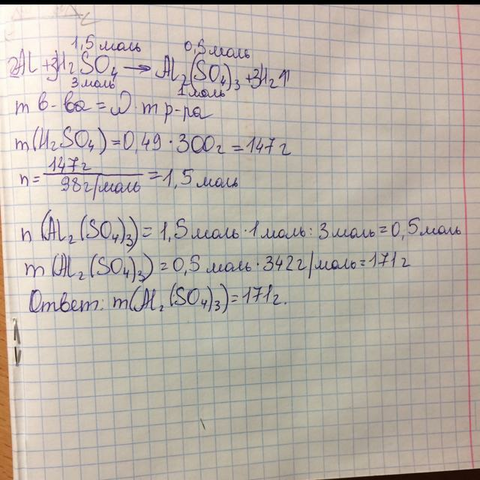 1,5 моль 0,5 моль
2Al + 3H₂SO₄ → Al₂(SO₄)₃ + 3H₂↑
3 моль 1 моль
m в-ва = ω · m р-ра
m(H₂SO₄) = 0,49 · 300г = 147 г
n = 147г / 98г/моль = 1,5 моль
n (Al₂(SO₄)₃) = 1,5 моль · 1 моль : 3 моль = 0,5 моль
m (Al₂(SO₄)₃) = 0,5 моль · 342 г/моль = 171 г
Ответ: m(Al₂(SO₄)₃) = 171 г.